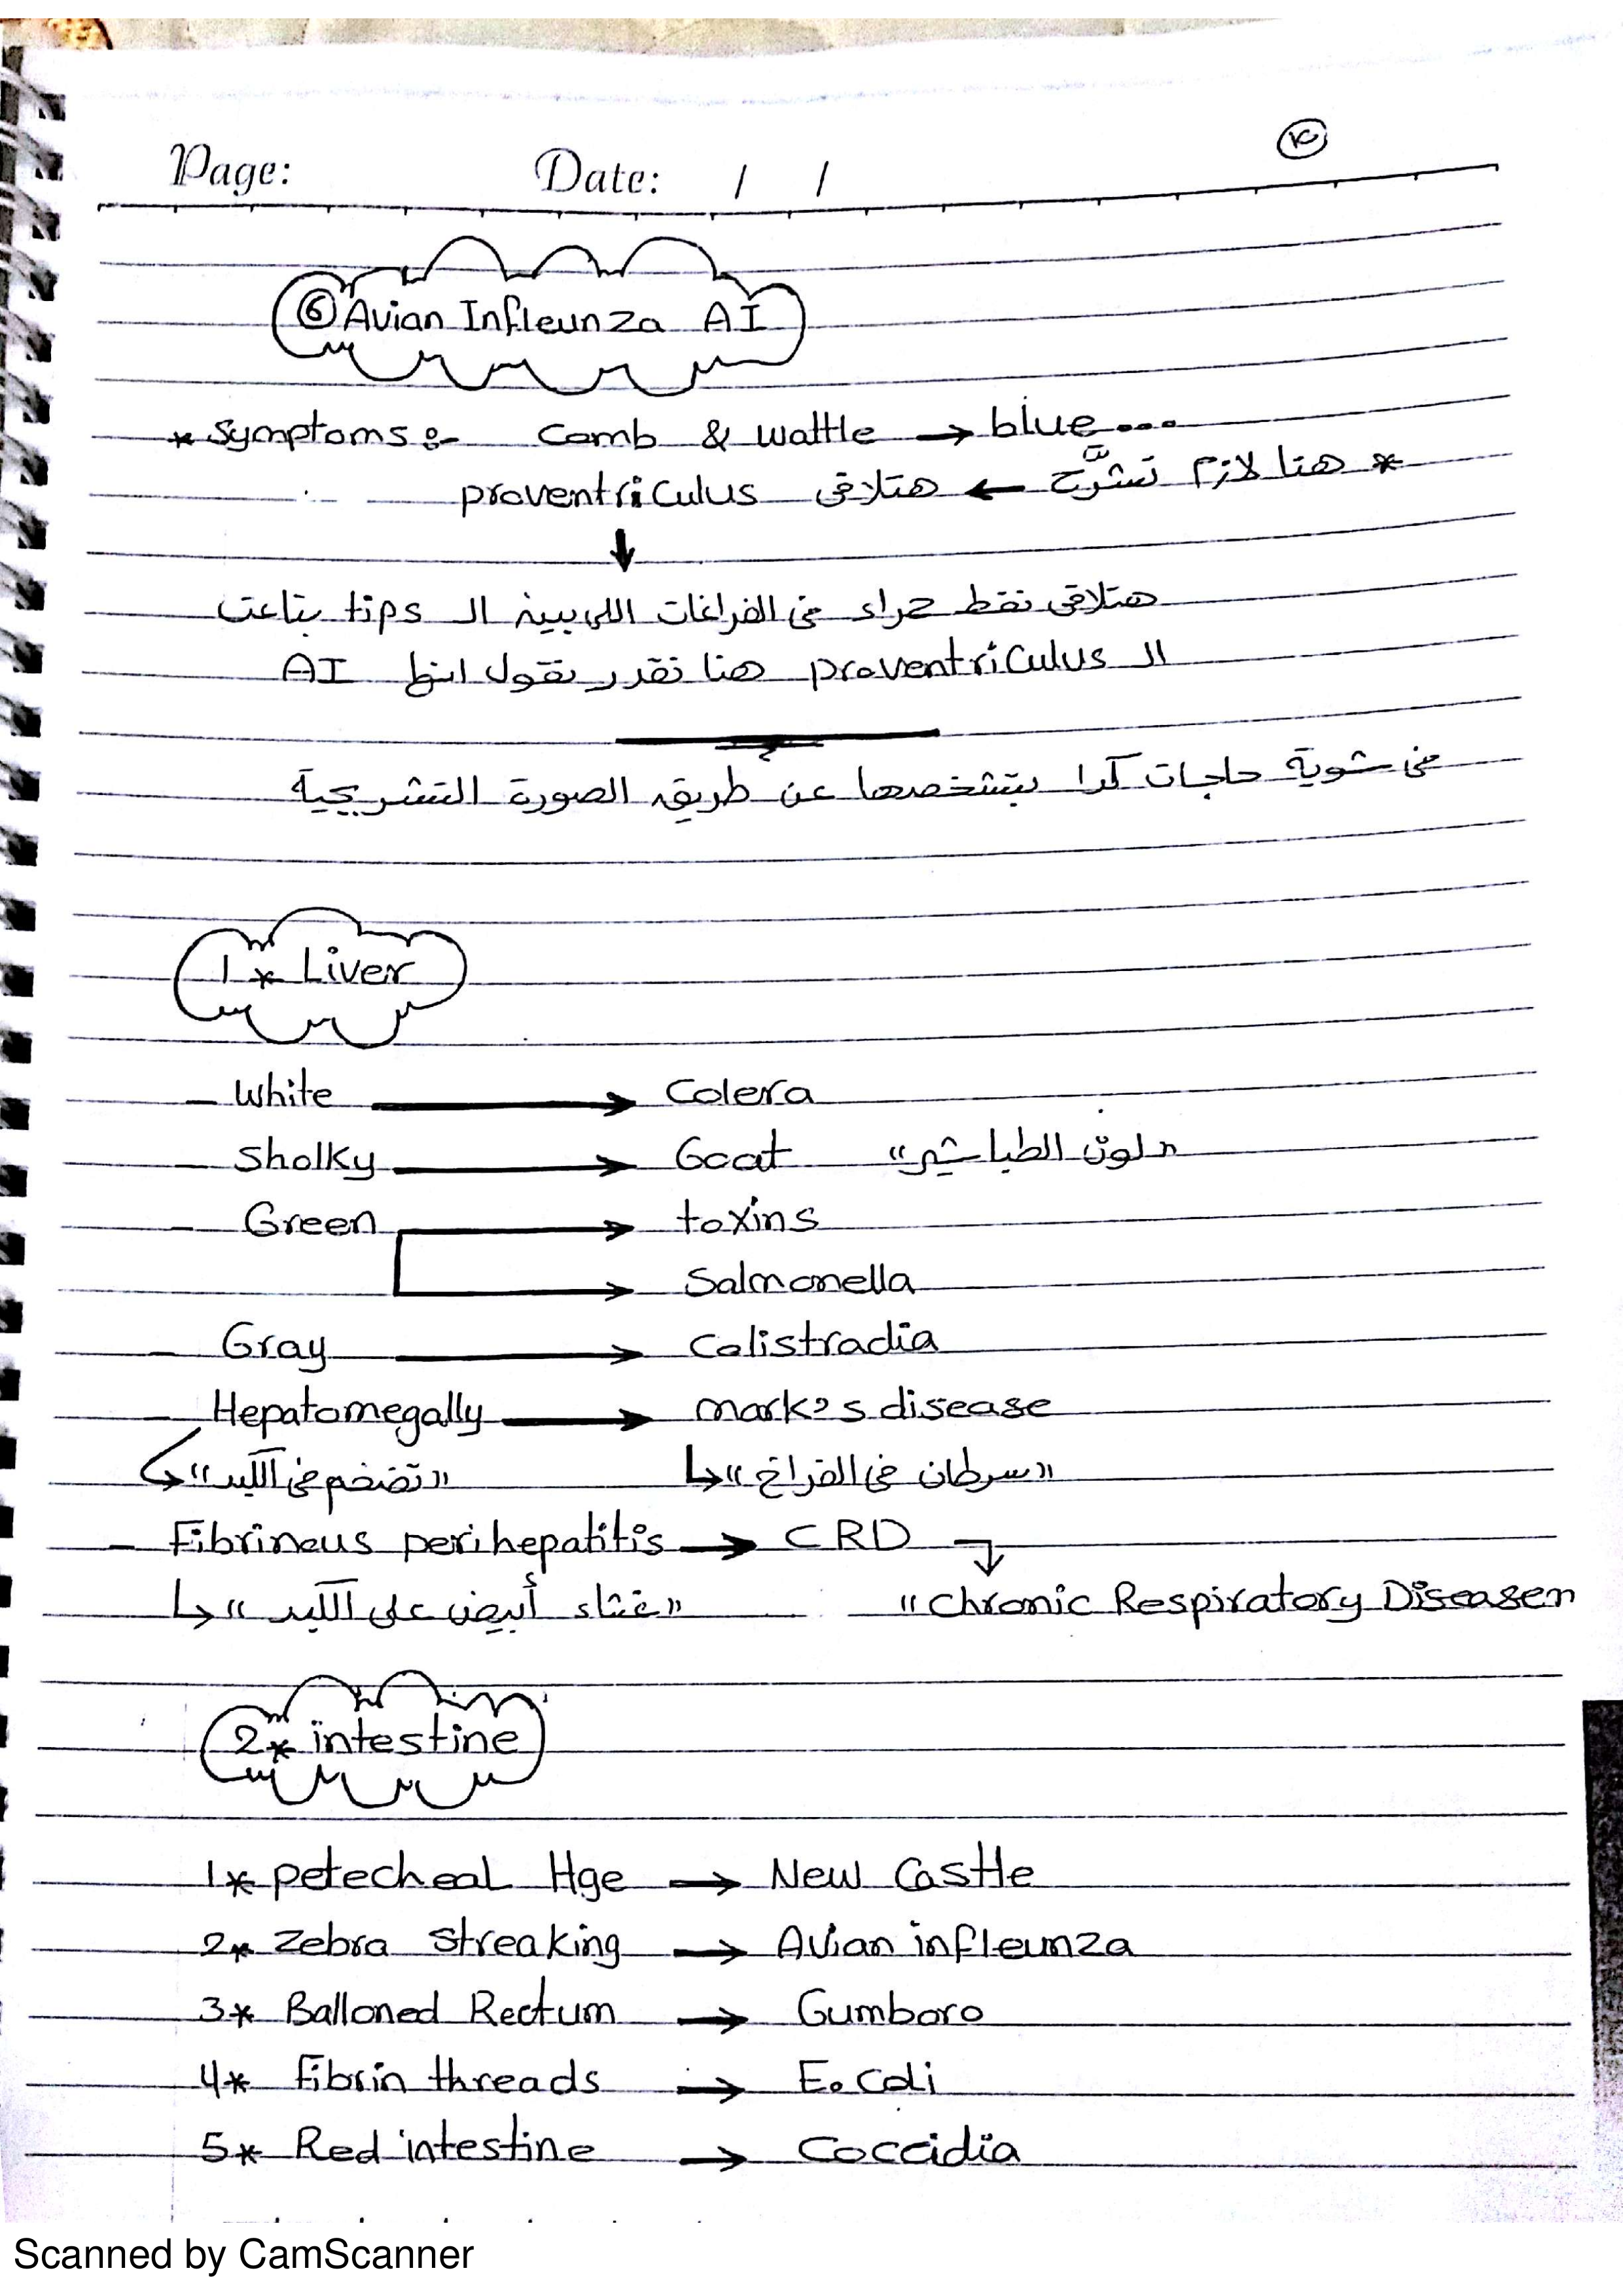 Page: Date: / /
⑥ Avian Infleunza AI
* Symptoms :- Comb & Wattle → blue...
* هنا لازم تشرَّح ← هتلاقى proventriculus
↓
هتلاقى نقط حمراء فى الفراغات اللى بين الـ tips بتاعت
الـ proventriculus هنا نقدر نقول انها AI
فى شوية حاجات كدا بتشخصها عن طريق الصورة التشريحية
1* Liver
- White → Colera
- Sholky → Goat "لون الطباشير"
- Green → toxins
→ Salmonella
- Gray → Colistradia
- Hepatomegally → mark's disease
↳ "تضخم فى الكبد" ↳ "سرطان فى الفراخ"
- Fibrineus perihepatitis → CRD
↳ "غشاء أبيض على الكبد" "Chronic Respiratory Disease"
2* intestine
1* petecheal Hge → New Castle
2* Zebra streaking → Avian infleunza
3* Balloned Rectum → Gumboro
4* Fibrin threads → E. coli
5* Red intestine → Coccidia
Scanned by CamScanner